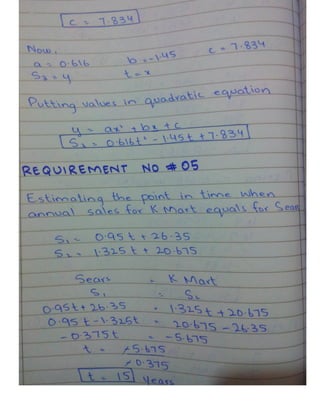 c = 7.834
Now,
a = 0.616 b = -1.45 c = 7.834
S₃ = y t = x
Putting values in quadratic equation
y = ax² + bx + c
S₃ = 0.616t² - 1.45t + 7.834
REQUIREMENT NO # 05
Estimating the point in time when
annual sales for K Mart equals for Sears
S₁ = 0.95t + 26.35
S₂ = 1.325t + 20.675
Sears = K Mart
S₁ = S₂
0.95t + 26.35 = 1.325t + 20.675
0.95t - 1.325t = 20.675 - 26.35
-0.375t = -5.675
t = -5.675
-0.375
t = 15 years